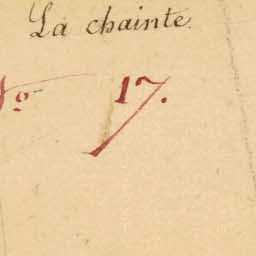 La chainte.
No 17.